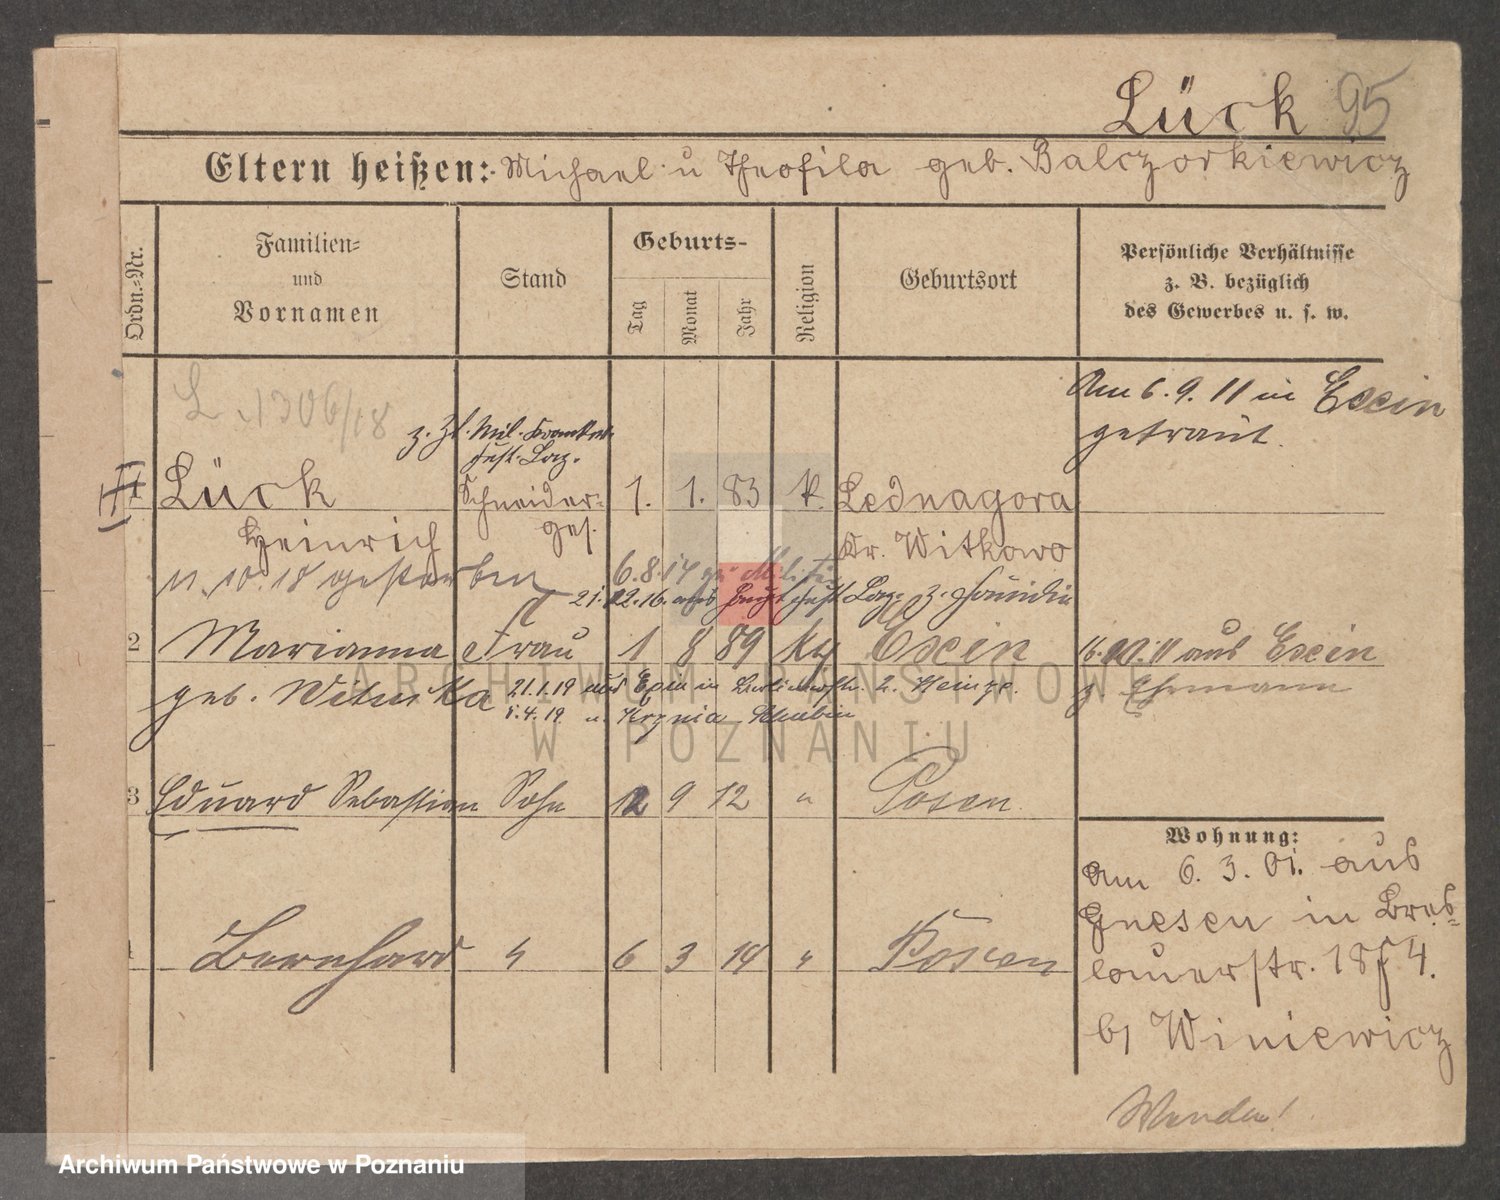 Lück 95
Eltern heißen: Michael u Theofila geb. Balczorkiewicz
Ordn.-Nr.
Familien-
und
Vornamen
Stand
Geburts-
Tag
Monat
Jahr
Religion
Geburtsort
Persönliche Verhältnisse
z. B. bezüglich
des Gewerbes u. s. w.
L. 1306/18
Am 6. 9. 11 in Exin
getraut.
z. Zt. Mil.
Fest. Laz.
1 Lück Schneider- 1. 1. 83 k. Lednagora
Heinrich ges. Kr. Witkowo
11. 10. 18 gestorben 6.8.14 zu Militär
21.12.16. aus Fest Laz. z.
2 Marianna Frau 1 8 89 kg Exin 16. 10. 11 aus Exin
geb. Wituska 21.1.19 aus Exin in z. Ehemann
5.4.19 n. Krznia Schubin
3 Eduard Sebastian Sohn 12 9 12 " Posen
Wohnung:
Am 6. 3. 01. aus
Gnesen in Bres-
lauerstr. 18 4.
b/ Winiewicz
4 Bernhard " 6 3 14 " Posen
Wenden!
ARCHIWUM PAŃSTWOWE
W POZNANIU
Archiwum Państwowe w Poznaniu